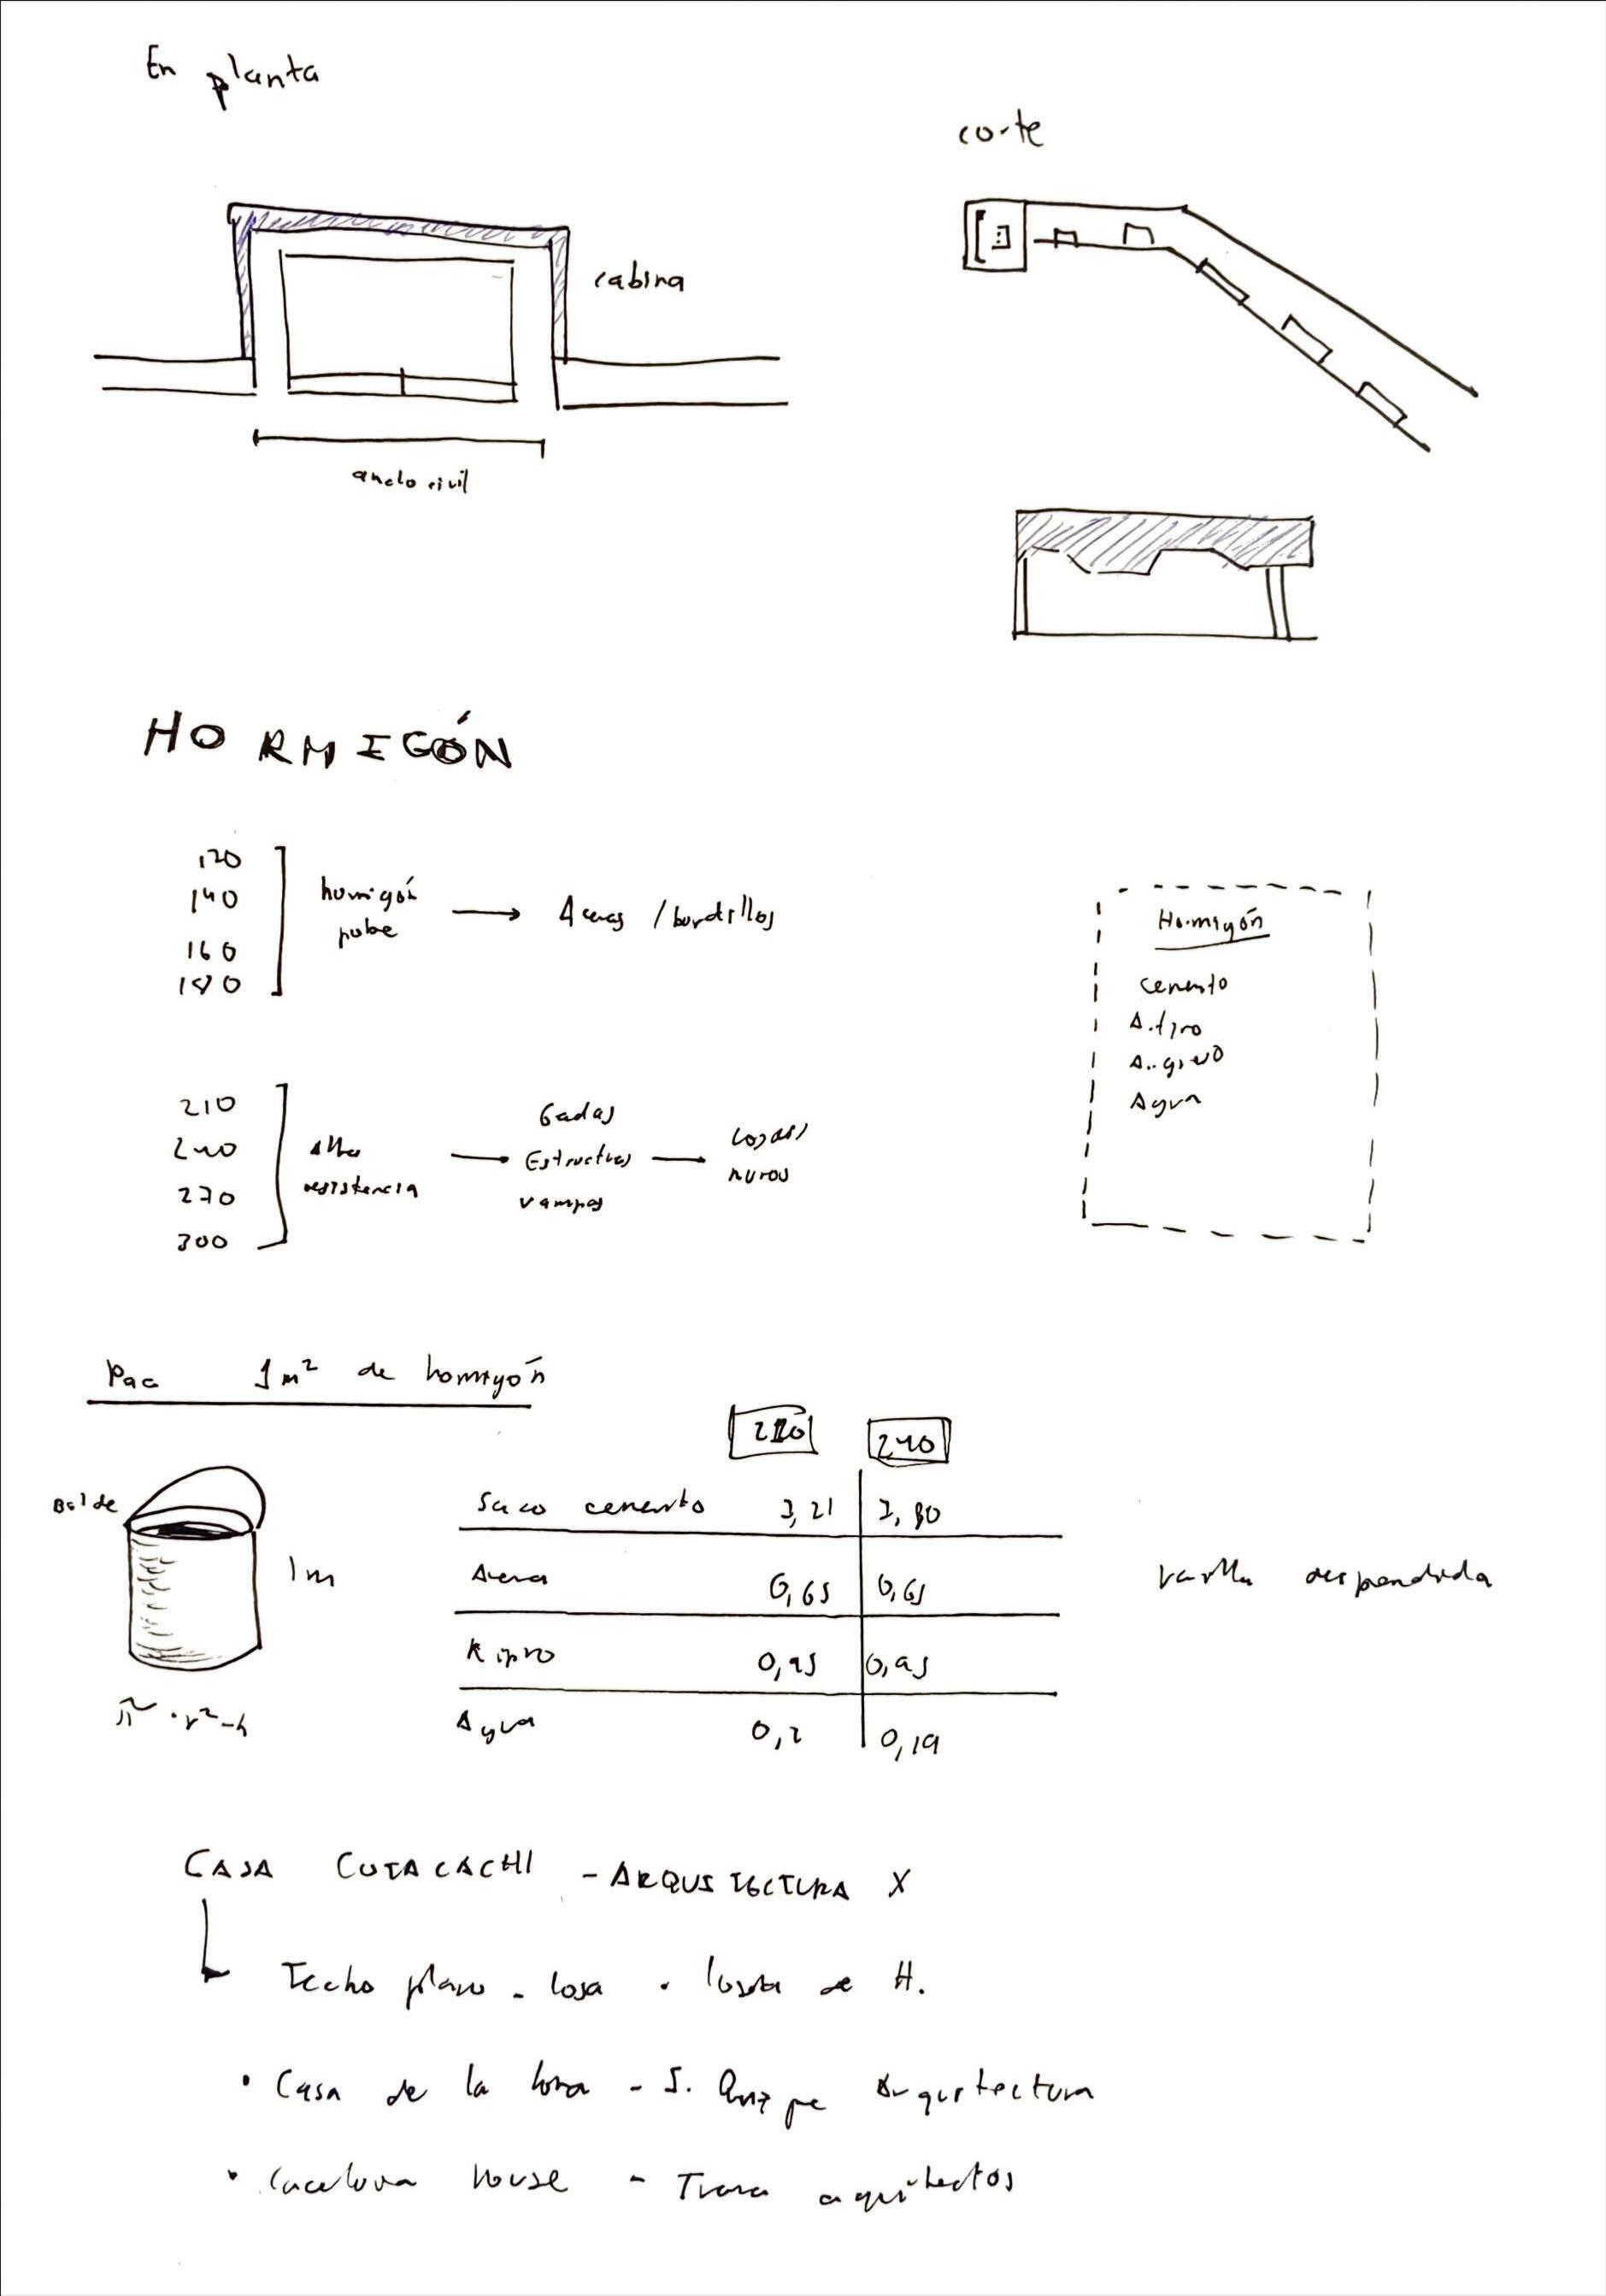 En planta
corte
cabina
ancho civil
HORMIGÓN
120
140
160
180
hormigón
pobre
→ Aceras / bordillos
Hormigón
cemento
A. fino
A. grueso
Agua
210
240
270
300
alta
resistencia
→
Gradas
Estructuras
rampas
→
losas
muros
Para 1m² de hormigón
210
240
Balde
1m
π · r² - h
Saco cemento 7,21 7,80
Arena 0,65 0,65
Ripio 0,95 0,95
Agua 0,2 0,19
varilla
CASA COTACACHI - ARQUITECTURA X
Techo plano - losa · loseta de H.
• Casa de la loma - Arquitectura
• house - arquitectos